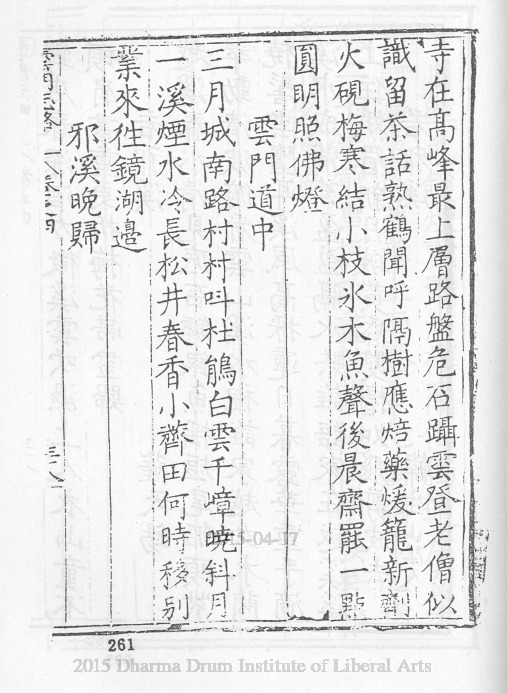 寺在髙峰最上層路盤危石躡雲登老僧似
識留茶話熟鶴聞呼隔樹應焙藥煖籠新劚
火硯梅寒結小枝氷木魚聲後晨齋罷一點
圓眀照佛燈
雲門道中
三月城南路村村呌杜鵑白雲千嶂曉斜月
一溪煙水冷長松井春香小薺田何時移别
業來徃鏡湖邊
邪溪晚歸
雲門志略 卷之四
15-04-17
261
2015 Dharma Drum Institute of Liberal Arts